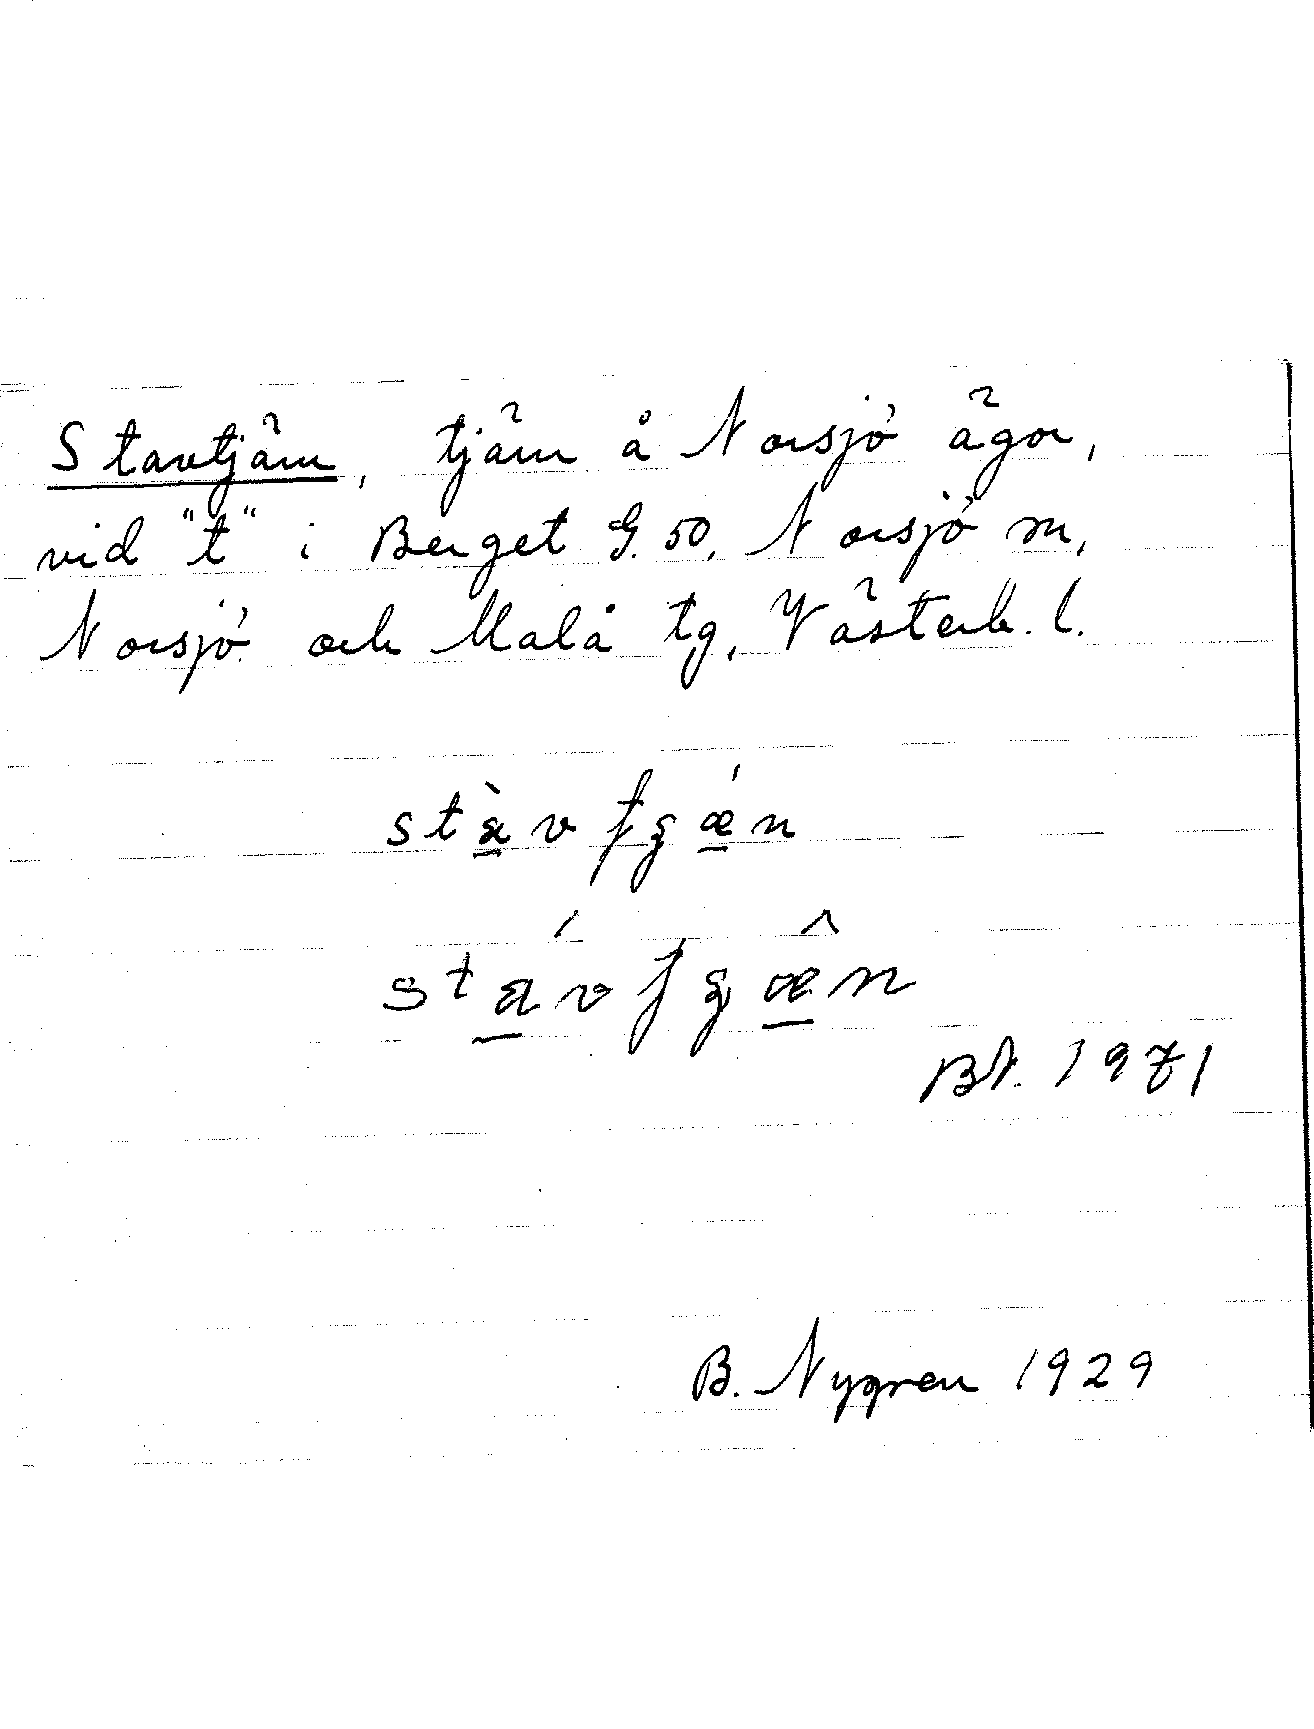 Stavtjärn, tjärn å Norsjö ägor,
vid "t" i Berget G. 50, Norsjö sn,
Norsjö och Malå tg, Västerb. l.
BN. 1971
B. Nygren 1929